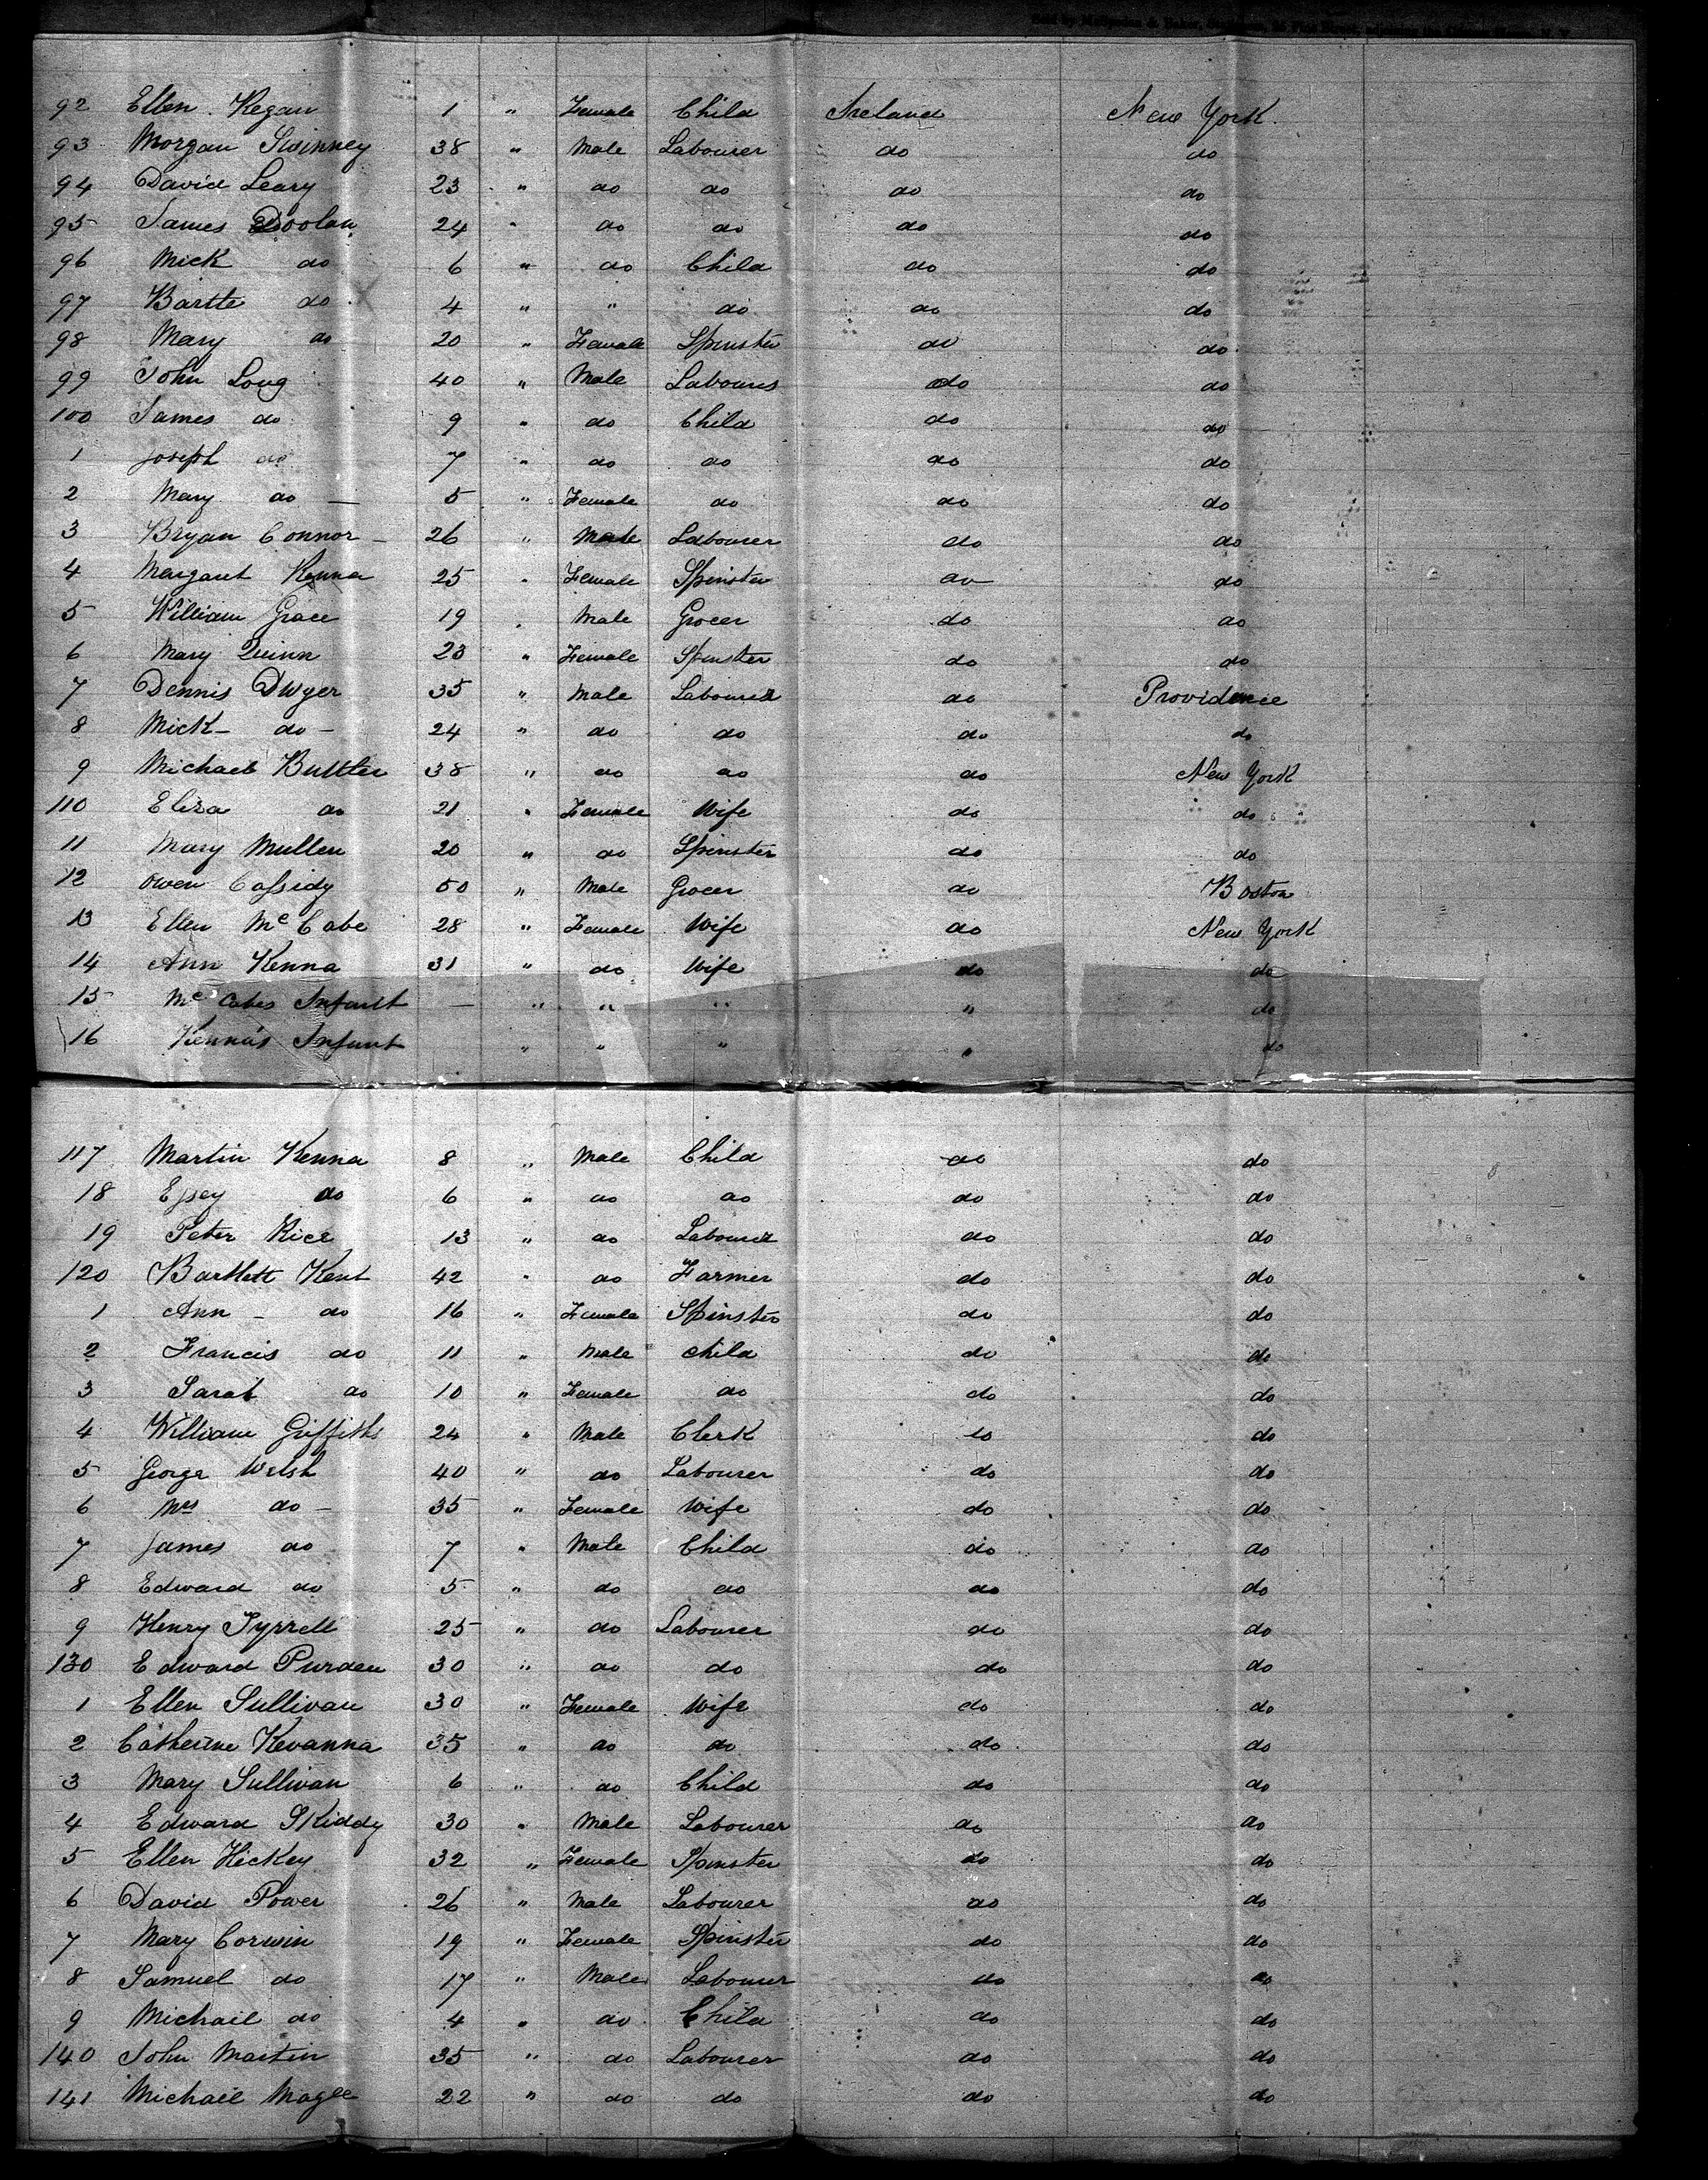 92 Ellen Kegan 1 " Female Child Ireland New York
93 Morgan Swinney 38 " Male Labourer do do
94 David Leary 23 " do do do do
95 James Doolan 24 " do do do do
96 Mick do 6 " do Child do do
97 Bartte do 4 " " do do do
98 Mary do 20 " Female Spinster do do
99 John Long 40 " Male Labourer do do
100 James do 9 " do Child do do
1 Joseph do 7 " do do do do
2 Mary do — 5 " Female do do do
3 Bryan Connor — 26 " Male Labourer do do
4 Margaret Kenna 25 " Female Spinster do do
5 William Grace 19 " Male Grocer do do
6 Mary Quinn 23 " Female Spinster do do
7 Dennis Dwyer 35 " Male Labourer do Providence
8 Mick — do — 24 " do do do do
9 Michael Buttler 38 " do do do New York
110 Eliza do 21 " Female Wife do do
11 Mary Mullen 20 " do Spinster do do
12 Owen Cassidy 50 " Male Grocer do Boston
13 Ellen McCabe 28 " Female Wife do New York
14 Ann Kenna 31 " do Wife do do
15 McCabes Infant — " " " " do
16 Kenna's Infant " " " " do
117 Martin Kenna 8 " Male Child do do
18 Essey do 6 " do do do do
19 Peter Rice 13 " do Labourer do do
120 Bartlett Kent 42 " do Farmer do do
1 Ann — do 16 " Female Spinster do do
2 Francis do 11 " Male Child do do
3 Sarah do 10 " Female do do do
4 William Griffiths 24 " Male Clerk do do
5 George Welsh 40 " do Labourer do do
6 Mrs do — 35 " Female Wife do do
7 James do 7 " Male Child do do
8 Edward do 5 " do do do do
9 Henry Tyrrell 25 " do Labourer do do
130 Edward Purden 30 " do do do do
1 Ellen Sullivan 30 " Female Wife do do
2 Catherine Kevanna 35 " do do do do
3 Mary Sullivan 6 " do Child do do
4 Edward Skiddy 30 " Male Labourer do do
5 Ellen Hickey 32 " Female Spinster do do
6 David Power 26 " Male Labourer do do
7 Mary Corwin 19 " Female Spinster do do
8 Samuel do 17 " Male Labourer do do
9 Michail do 4 " do Child do do
140 John Martin 35 " do Labourer do do
141 Michail Magee 22 " do do do do